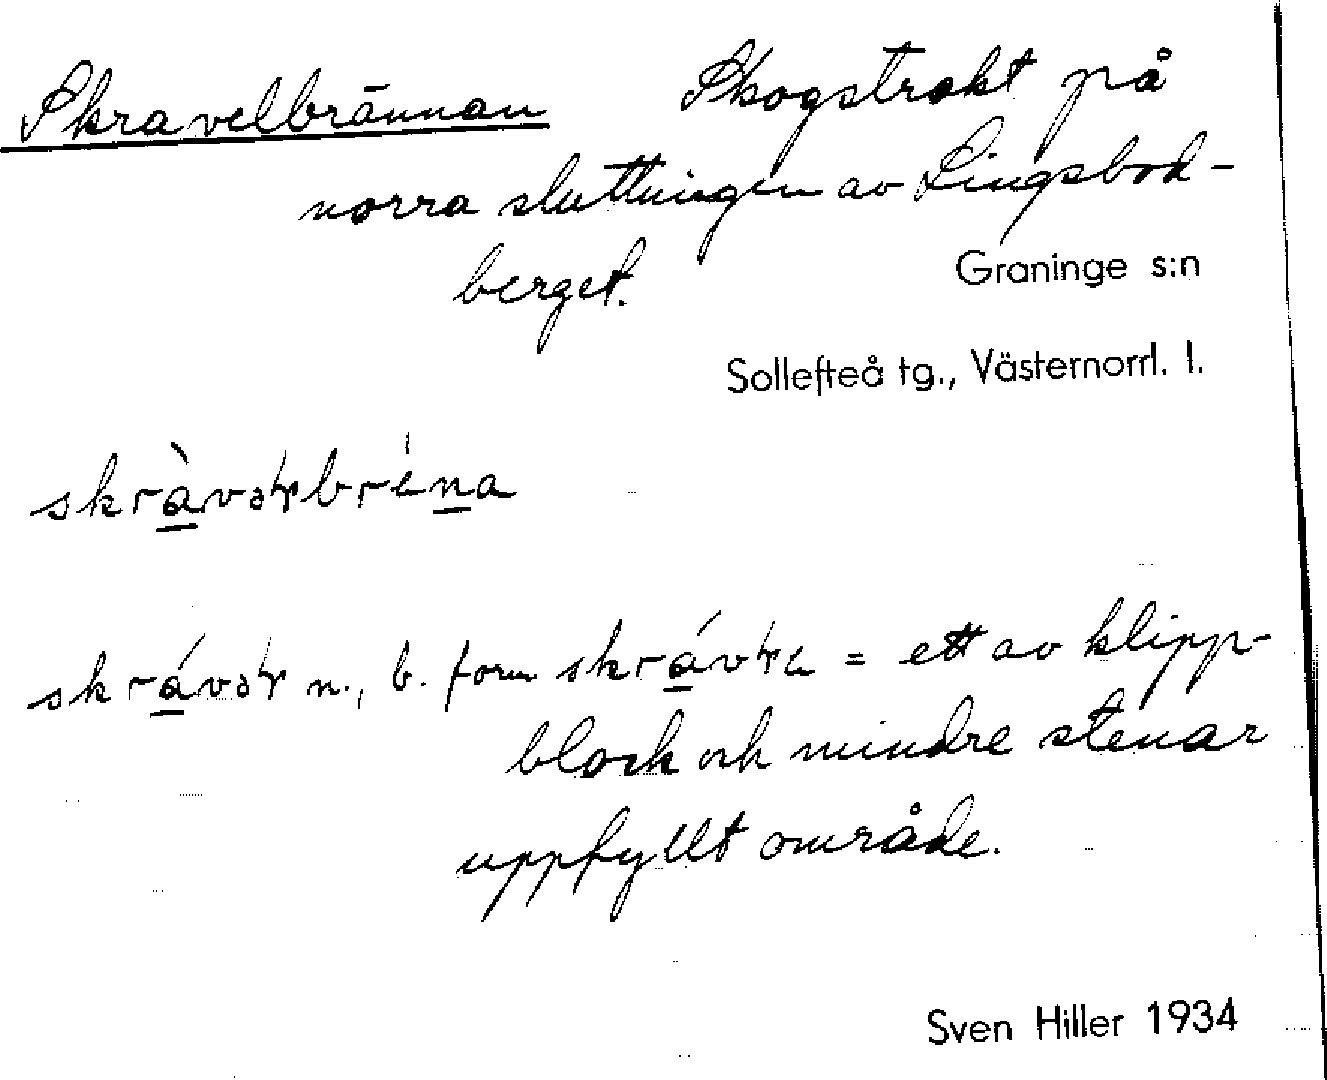 Skravelbrännan Skogstrakt på
norra sluttningen av Lingsbod-
berget.
Graninge s:n
Sollefteå tg., Västernorrl. l.
n., b. form = ett av klipp-
block och mindre stenar
uppfyllt område.
Sven Hiller 1934